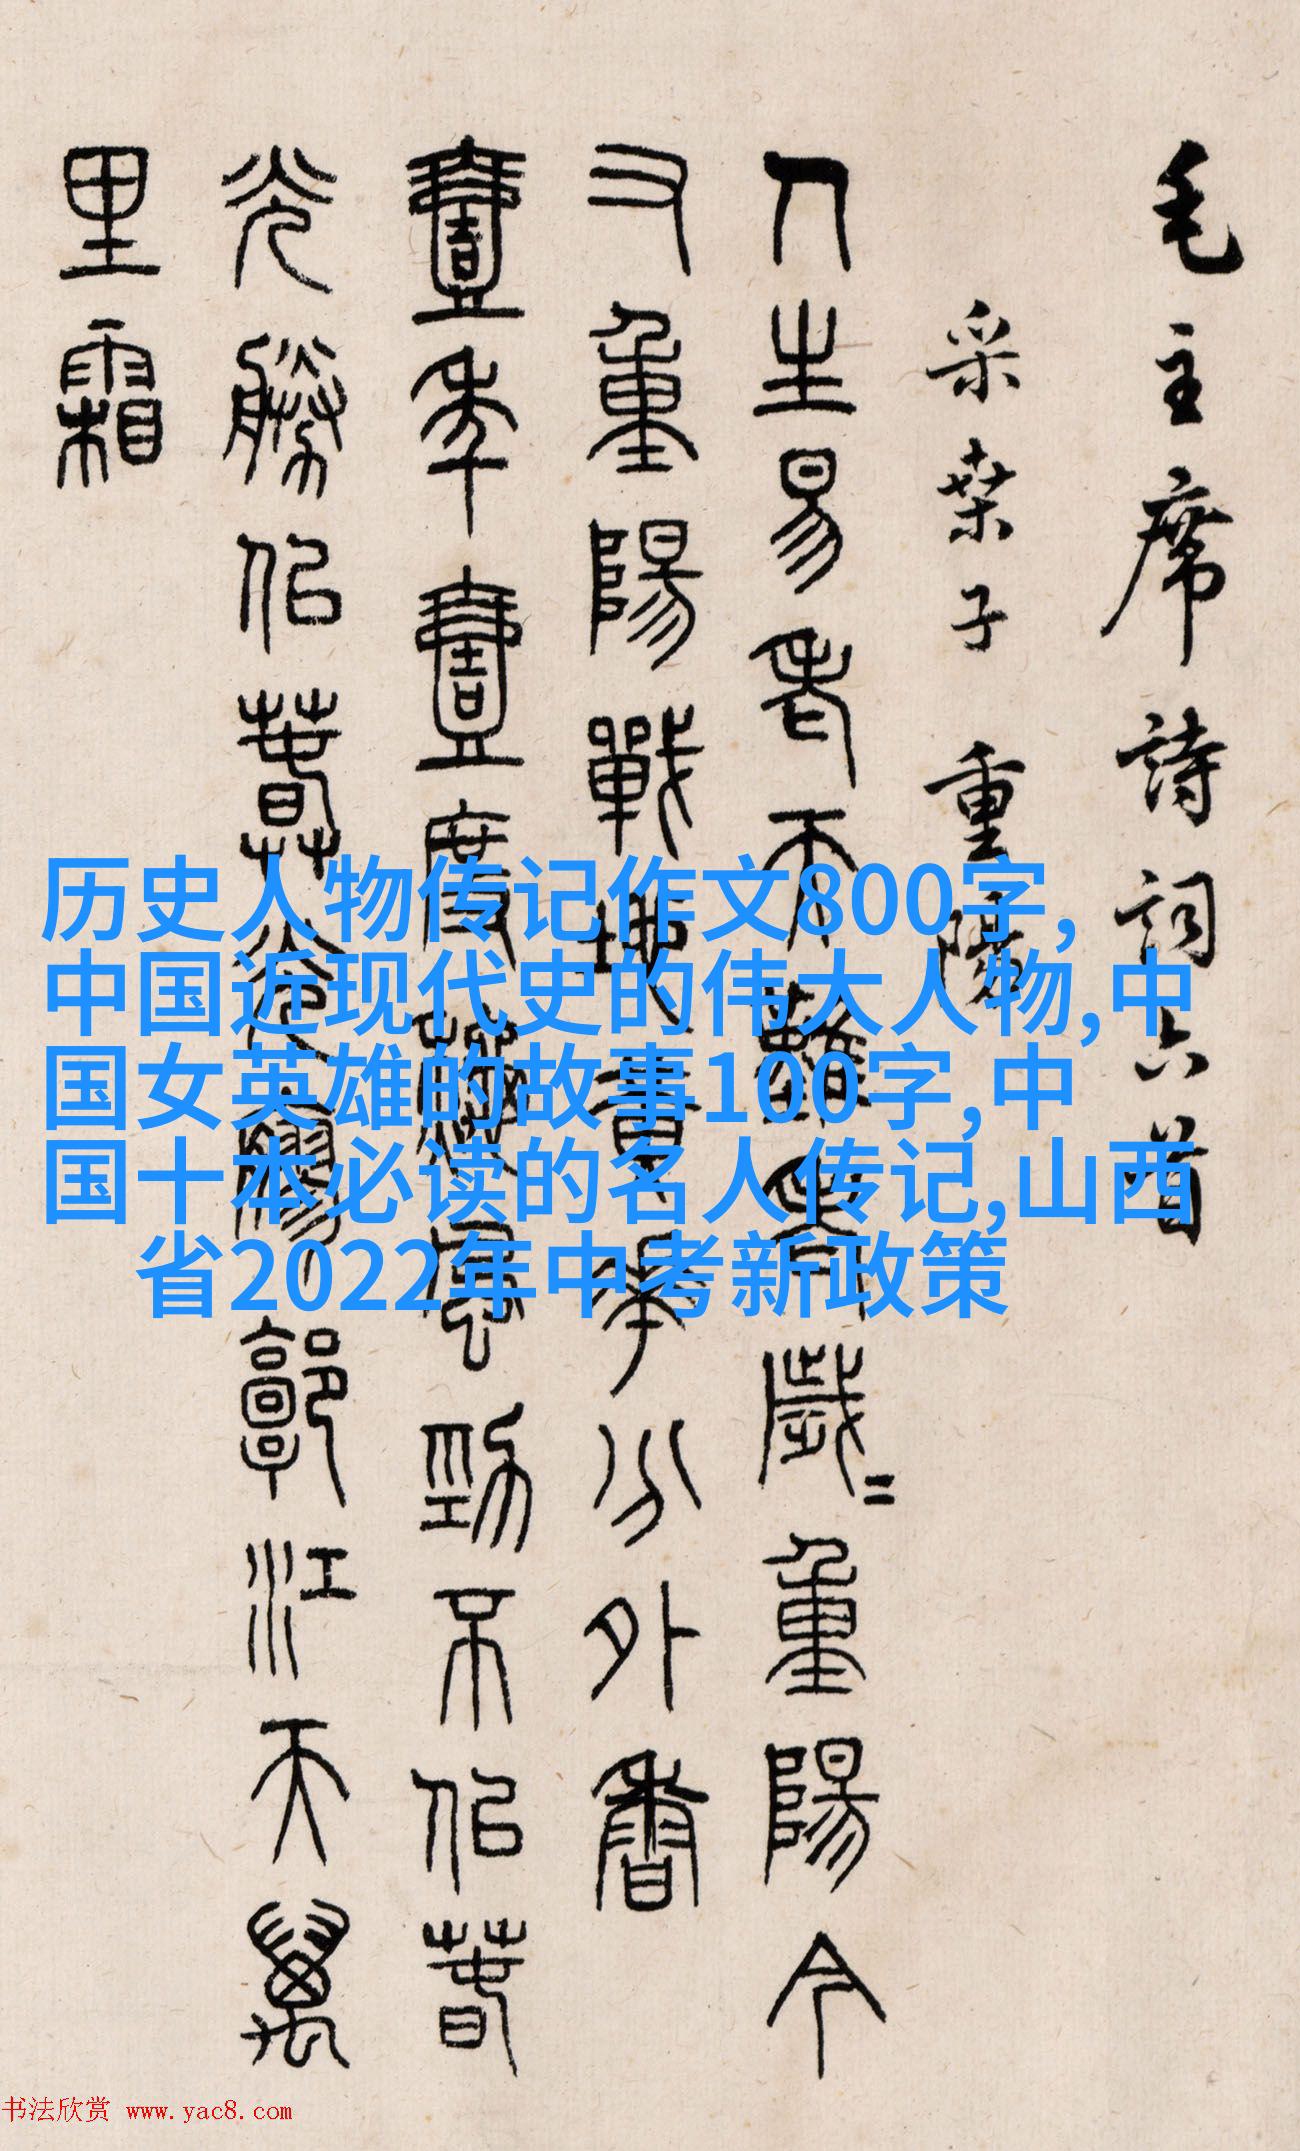 毛主席詩詞六首
采桑子 重陽
人生易老天難老歲〻重陽今
又重陽戰地黃華分外香
壹年壹度秋風勁不佀春
光勝佀春光寥郭江天萬
里霜
历史人物传记作文800字,
中国近现代史的伟大人物,中
国女英雄的故事100字,中
国十本必读的名人传记,山西
省2022年中考新政策
书法欣赏 www.yac8.com